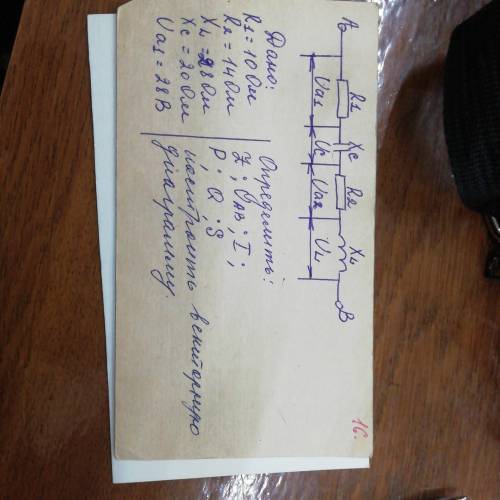 16.
A R1 Xc R2 XL B
Ua1 Uc Ua2 UL
Дано:
R1 = 10 Ом
R2 = 14 Ом
XL = 28 Ом
Xc = 20 Ом
Ua1 = 28 В
Определить:
Z; UAB; I;
P; Q; S
построить векторную
диаграмму.